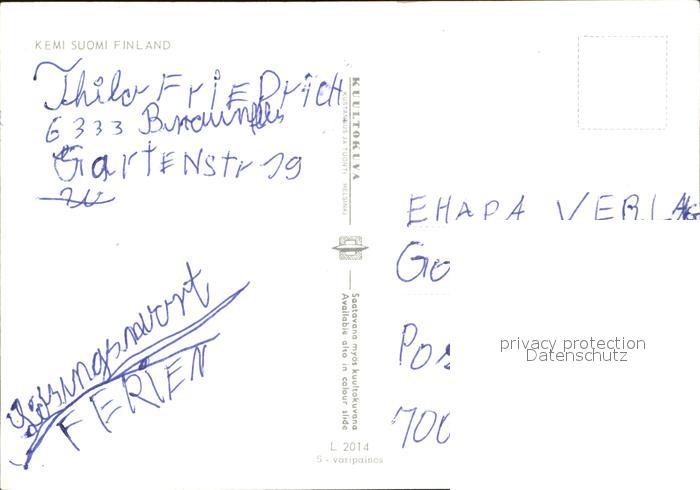 KEMI SUOMI FINLAND
Thilo FRIEDRICH
6333 Braunfels
GartENstr 19
KUULTOKUVA
KUSTANNUS JA TUONTI HELSINKI
EHAPA VERLAG
Go
Pos
700
privacy protection
Datenschutz
Lösungswort
FERIEN
Saatavana myös kuultokuvana
Available also in colour slide
L 2014
S - väripainos